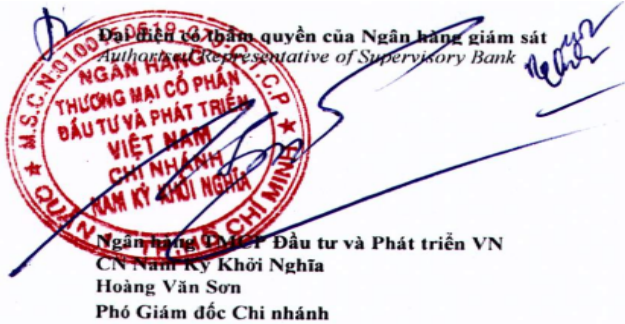 Đại diện có thẩm quyền của Ngân hàng giám sát
Authorised Representative of Supervisory Bank
M.S.C.N:0100
C.T.C.P
NGÂN HÀNG
THƯƠNG MẠI CỔ PHẦN
ĐẦU TƯ VÀ PHÁT TRIỂN
VIỆT NAM
CHI NHÁNH
NAM KỲ KHỞI NGHĨA
QUẬN 1 - TP.HỒ CHÍ MINH
Ngân hàng TMCP Đầu tư và Phát triển VN
CN Nam Kỳ Khởi Nghĩa
Hoàng Văn Sơn
Phó Giám đốc Chi nhánh